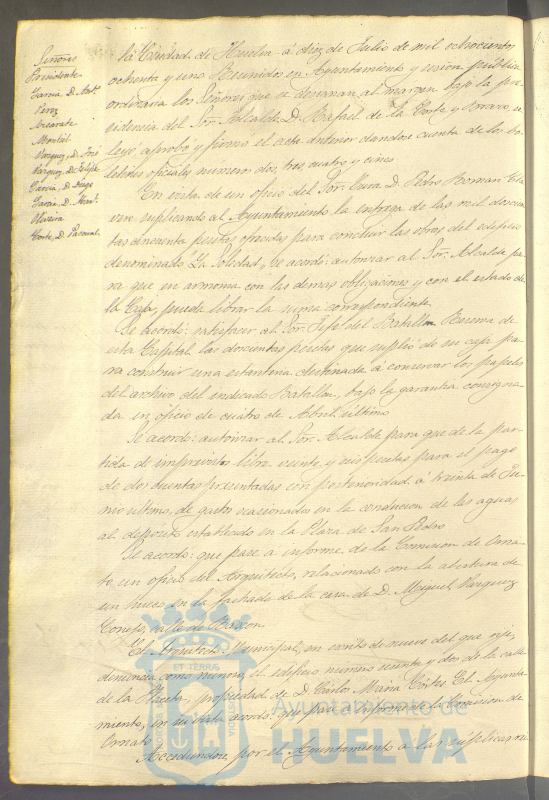 Señores
Presidente
Garcia, D. Antº
Perez
Azcarate
Montiel
Vazquez, D. José
Vazquez, D. Felipe
Garcia, D. Diego
Garcia, D. Manl.
Oliveira
Corte, D. Pascual
la Ciudad de Huelva a diez de Julio de mil ochocientos
ochenta y uno Reunidos en Ayuntamiento y sesion pública
ordinaria los Señores que se espresan al margen bajo la pre-
sidencia del Sor. Alcalde D. Rafael de la Corte y Bravo, se
leyó, aprobó y firmó el acta anterior dandose cuenta de los bo-
letines oficiales numeros dos, tres, cuatro y cinco
En vista de un oficio del Sor. Cura D. Pedro Roman Cla-
vero suplicando al Ayuntamiento la entrega de las mil doscien-
tas cincuenta pesetas ofrecidas para concluir las obras del edificio
denominado "La Soledad", Se acordó: autorizar al Sor. Alcalde pa-
ra que en armonia con las demas obligaciones y con el estado de
la Caja, pueda librar la suma correspondiente.
Se acordó: satisfacer al Sor. Jefe del Batallon Reserva de
esta Capital las doscientas pesetas que suplió de su caja pa-
ra construir una estanteria destinada á conservar los papeles
del archivo del indicado Batallon, bajo la garantia consigna-
da en oficio de cuatro de Abril último
Se acordó: autorizar al Sor. Alcalde para que de la par-
tida de imprevistos libre veinte y seis pesetas para el pago
de dos cuentas presentadas con posterioridad á treinta de Ju-
nio último, de gastos ocasionados en la conduccion de las aguas
al depósito establecido en la Plaza de San Pedro
Se acordó: que pase a informe de la Comision de Orna-
to un oficio del Arquitecto, relacionado con la abertura de
un hueco en la fachada de la casa de D. Miguel Vazquez
Conejo, calle de
El Arquitecto Municipal, en escrito de nueve del que rije,
denuncia como ruinoso, el edificio número veinte y dos de la calle
de la Placeta, propiedad de D. Carlos Maria Cortes El Ayunta-
miento, en su vista acordó: que pase a informe de la Comision de
Ornato
Accediendose por el Ayuntamiento a las súplicas
Ayuntamiento de
HUELVA